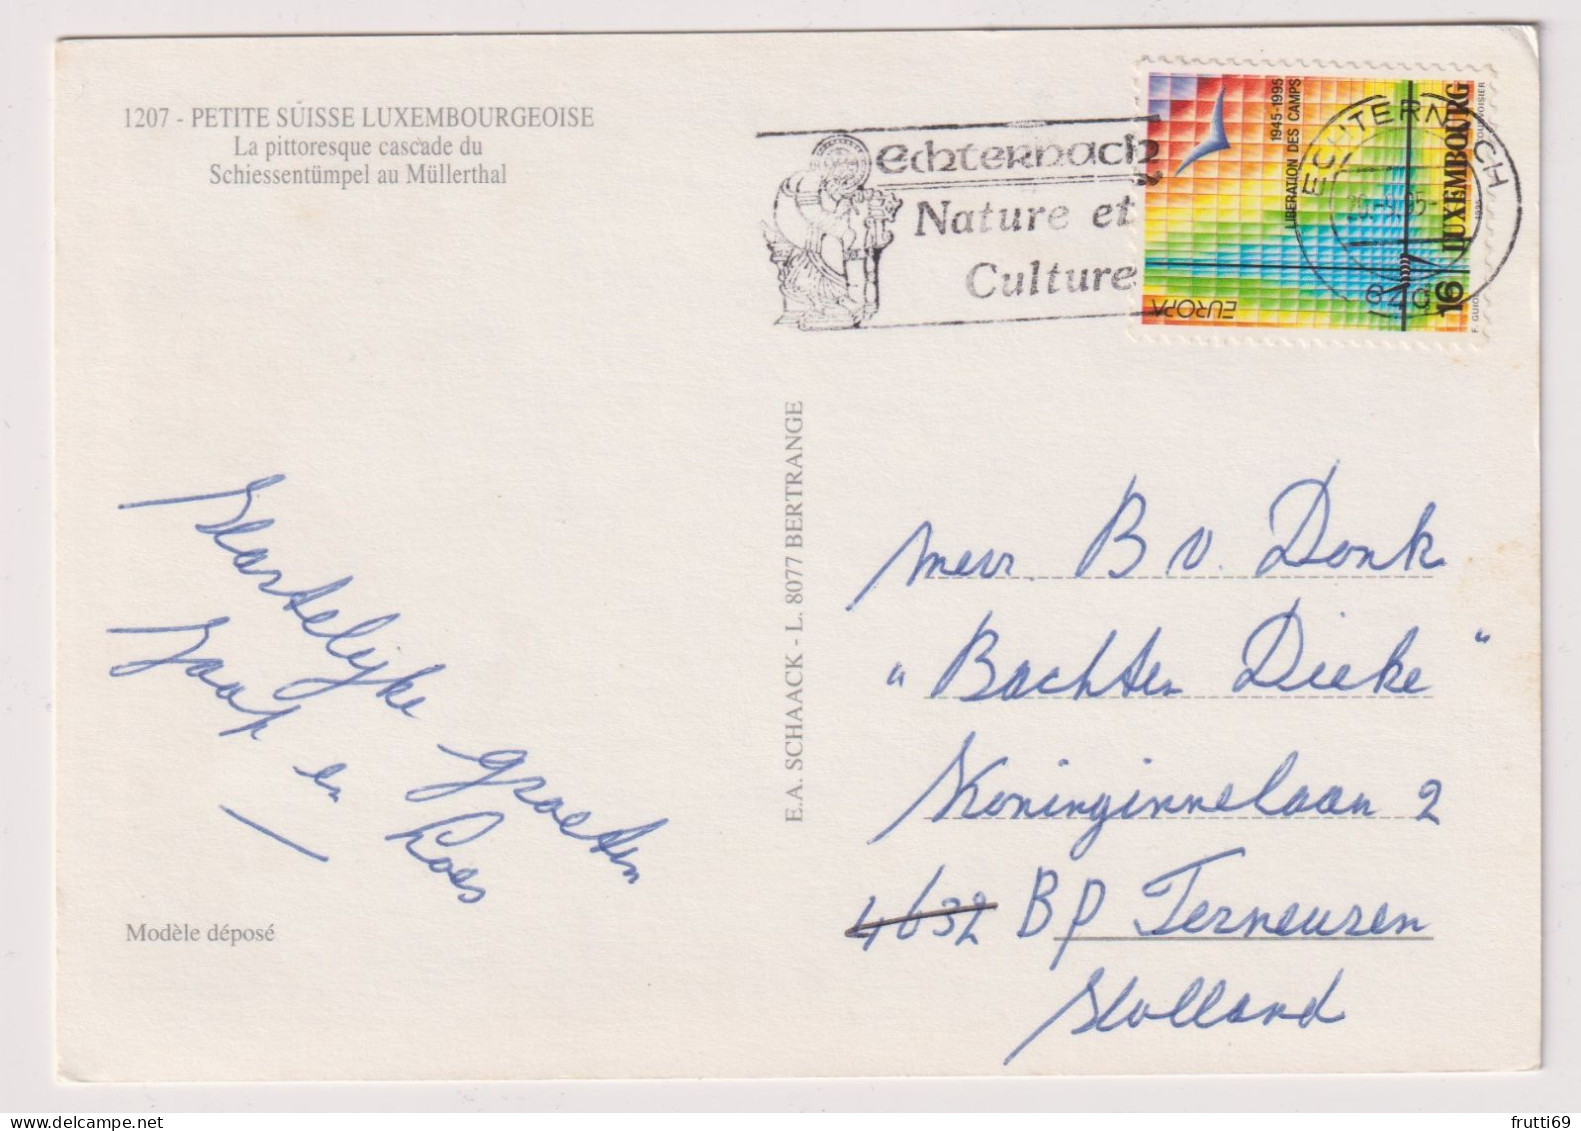 1207 - PETITE SUISSE LUXEMBOURGEOISE
La pittoresque cascade du
Schiessentümpel au Müllerthal
echternach
Nature et
Culture
1945-1995
LIBERATION DES CAMPS
LUXEMBOURG
16
EUROPA
ECHTERNACH
E.A. SCHAACK - L. 8077 BERTRANGE
Hartelijke groeten
Jaap en Loes
Modèle déposé
Mevr. B v. Donk
"Bachten Dieke"
Koninginnelaan 2
4632 BP Terneuzen
Holland
frutti69